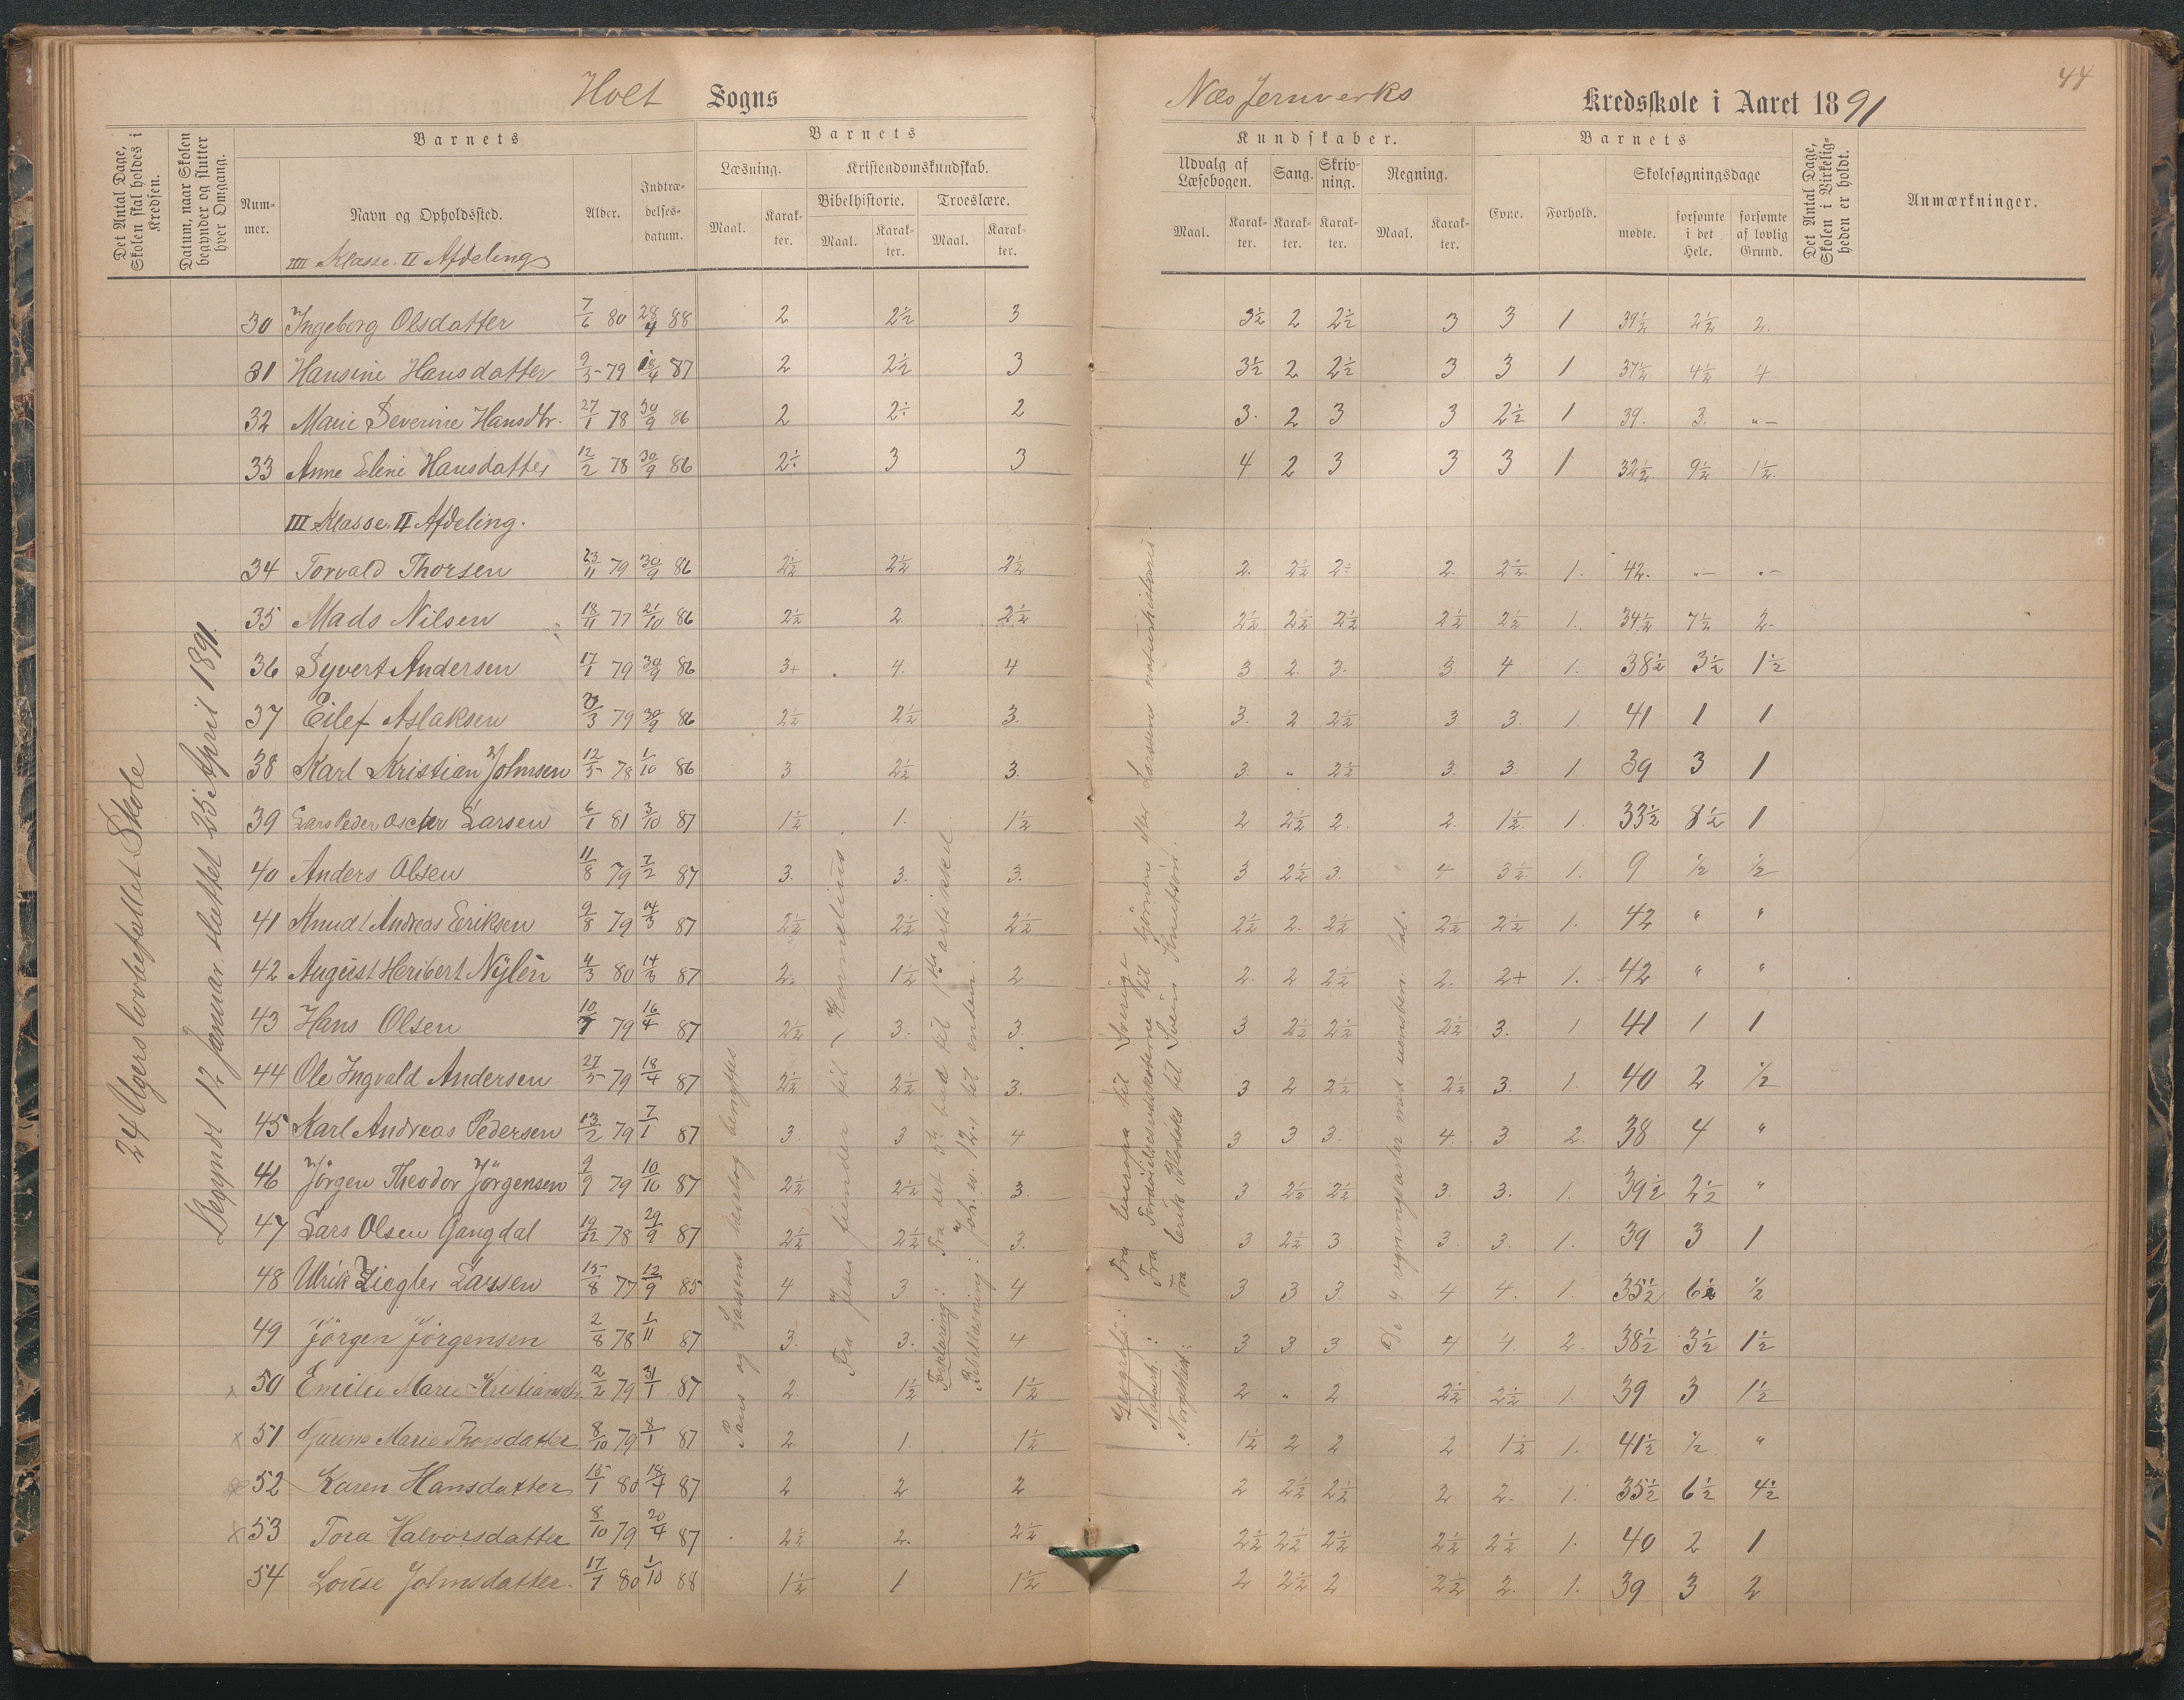 Holt Sogns
Næs Jernverks Kredsskole i Aaret 1891
44
Det Antal Dage, Skolen skal holdes i Kredsen.
Datum, naar Skolen begynder og slutter hver Omgang.
Barnets
Nummer.
Navn og Opholdssted.
Alder.
Indtrædelsesdatum.
Barnets
Læsning.
Maal.
Karakter.
Kristendomskundskab.
Bibelhistorie.
Maal.
Karakter.
Troeslære.
Maal.
Karakter.
Kundskaber.
Udvalg af Læsebogen.
Maal.
Karakter.
Sang.
Karakter.
Skrivning.
Karakter.
Regning.
Maal.
Karakter.
Barnets
Evne.
Forhold.
Skolesøgningsdage
mødte.
forsømte i det Hele.
forsømte af lovlig Grund.
Det Antal Dage, Skolen i Virkeligheden er holdt.
Anmærkninger.
IIII Klasse. II Afdeling
30 Ingeborg Olsdatter 7/6 80 28/4 88 2 2½ 3 3½ 2 2½ 3 3 1 39½ 2½ 2.
31 Hansine Hansdatter 9/5 79 18/4 87 2 2½ 3 3½ 2 2½ 3 3 1 37½ 4½ 4
32 Marie Severine Hansdtr. 27/1 78 30/9 86 2 2÷ 2 3. 2 3 3 2½ 1 39. 3. "–
33 Anne Eline Hansdatter 12/2 78 30/9 86 2÷ 3 3 4 2 3 3 3 1 32½ 9½ 1½.
III Klasse. II Afdeling.
34 Torvald Thorsen 23/11 79 30/9 86 2½ 2½ 2½ 2. 2½ 2÷ 2. 2½. 1. 42. "– "–
35 Mads Nilsen 18/11 77 21/10 86 2½ 2 2½ 2½ 2½ 2½ 2½ 2½ 1. 34½ 7½ 2.
36 Syvert Andersen 17/1 79 30/9 86 3+ 4. 4 3 2. 3. 3. 4 1. 38½ 3½ 1½
37 Eilef Aslaksen 20/3 79 30/9 86 2½ 2½ 3. 3. 2 2½ 3. 3. 1. 41 1 1
38 Karl Kristian Johnsen 12/5 78 1/10 86 3 2½ 3. 3. " 2½ 3. 3. 1. 39 3 1
39 Lars Peder Oscar Larsen 6/1 81 3/10 87 1½ 1. 1½ 2 2½ 2. 2. 1½. 1. 33½ 8½ 1
40 Anders Olsen 11/8 79 7/2 87 3. 3. 3. 3 2½ 3. 4 3½ 1. 9 ½ ½
41 Knudt Andreas Eriksen 9/8 79 14/3 87 2½ 2½ 2½ 2½ 2. 2½ 2½ 2½ 1. 42 " "
42 August Heribert Nylén 4/3 80 14/3 87 2. 1½ 2 2. 2 2½ 2. 2+ 1. 42 " "
43 Hans Olsen 10/7 79 16/4 87 2½ 3. 3. 3 2½ 2½ 2½ 3. 1 41 1 1
44 Ole Ingvald Andersen 27/5 79 18/4 87 2½ 2½ 3. 3 2 2½ 2½ 3. 1. 40 2 ½
45 Karl Andreas Pedersen 13/2 79 7/1 87 3. 3 4 3 3 3. 4. 3 2. 38 4 "
46 Jörgen Theodor Jörgensen 9/9 79 10/10 87 2½ 2½ 3. 3 2½ 2½ 3. 3. 1. 39½ 2½ "
47 Lars Olsen Gangdal 19/12 78 29/9 87 2½ 2½ 3. 3 2½ 3 3. 3. 1. 39 3 1
48 Ulrik Ziegler Larssen 15/8 77 12/9 85 4 3 4 3 3 3 4 4. 1. 35½ 6½ ½
49 Jörgen Jörgensen 2/8 78 1/11 87 3. 3. 4 3 3 3 4 4. 2. 38½ 3½ 1½
50 Emilie Marie Kristiansdtr. 2/2 79 31/1 87 2. 1½ 1½ 2 " 2 2½ 2½ 1. 39 3 1½
x 51 Gunne Marie Thorsdatter 8/10 79 8/1 87 2. 1. 1½ 1½ 2 2 2 1½ 1. 41½ ½ "
52 Karen Hansdatter 15/1 80 18/4 87 2 2 2 2 2½ 2½ 2 2. 1. 35½ 6½ 4½
x 53 Tora Halvorsdatter 8/10 79 20/4 87 2½ 2. 2½ 2½ 2½ 2½ 2½ 2½ 1. 40 2 1
54 Lovise Johnsdatter. 17/7 80 1/10 88 1½ 1 1½ 2 2½ 2 2½ 2. 1. 39 3 2
24 Ugers lovbefallet Skole
Begyndt 12 Januar. sluttet 25 April 1891.
læsebog benyttes
Fra Jesu fiender til Kornelius.
Forklaring: Fra det 5te bud til 1ste artikkel
Bibellæsning: Joh. ev. 12. til enden.
Geografi: Fra Europa til Sverige
Naturh.: Fra Fordøielsesredskaberne til hjørnene efter Larsens naturhistorie.
Norgeshist.: Fra Erik Blodöks til Svein Knutsön.
De 4 regningsarter med uensben. tal.